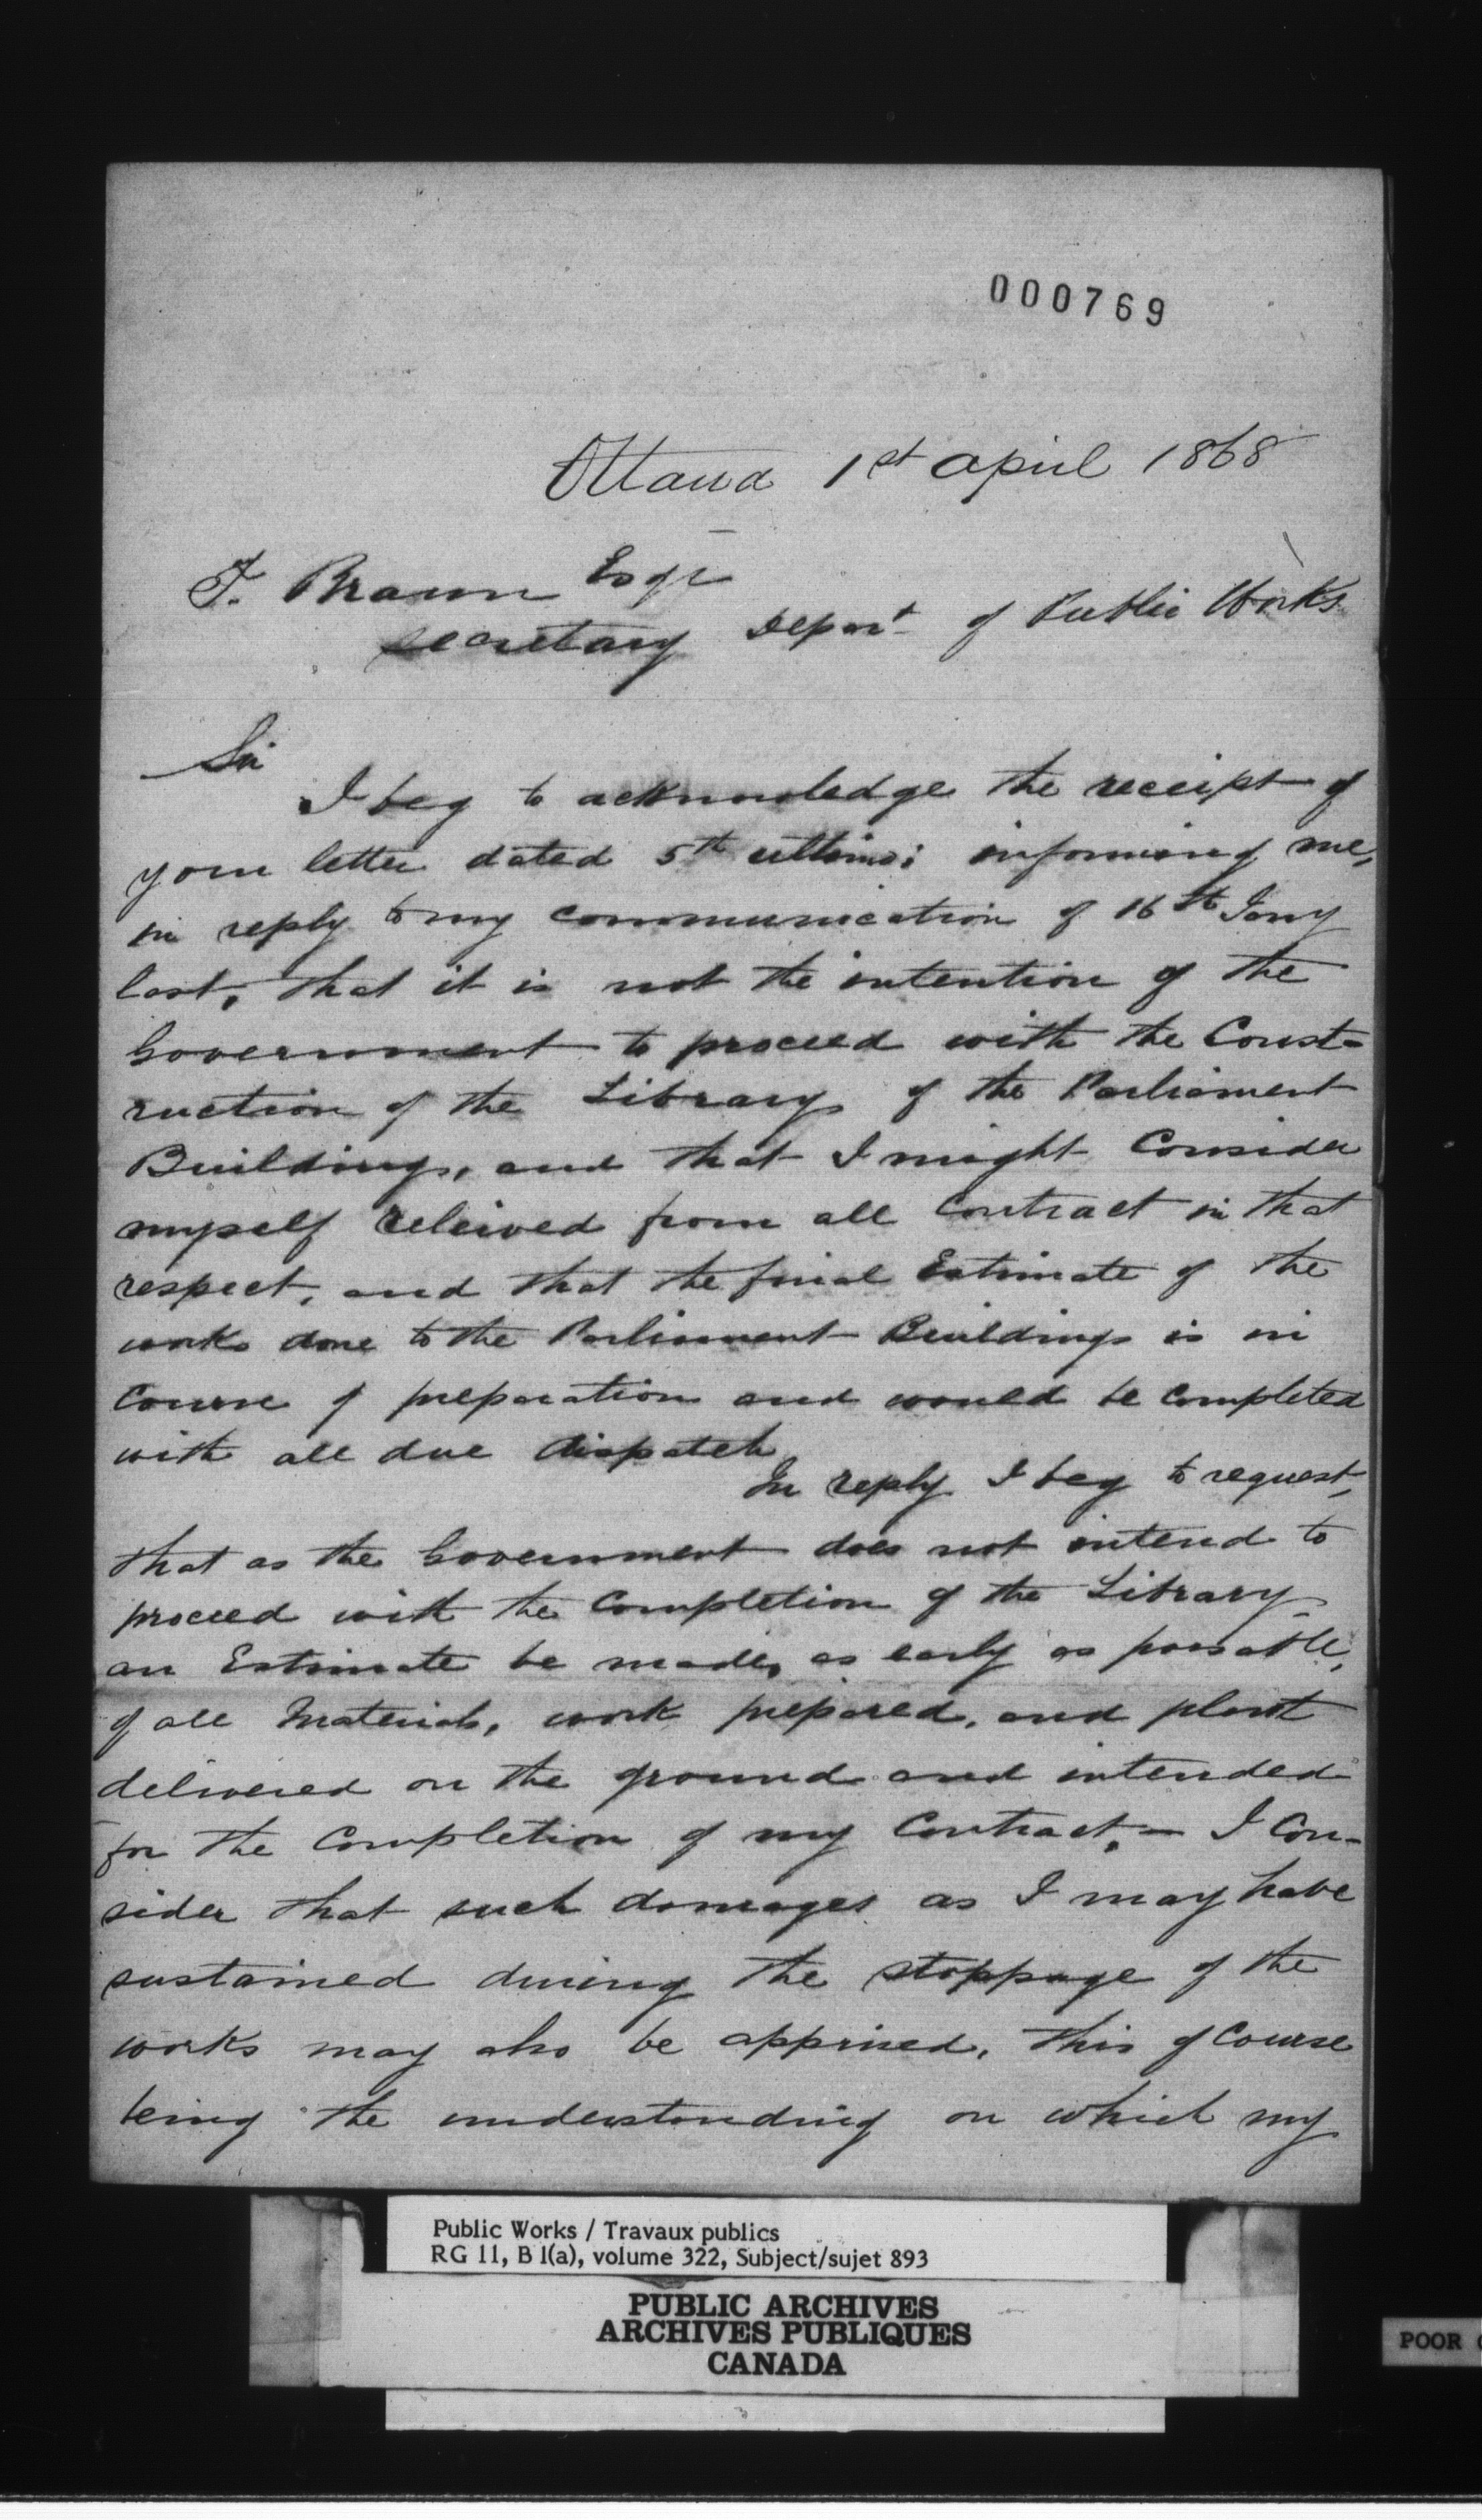 000769
Ottawa 1st April 1868
F. Braun Esqr
Secretary Depart of Public Works
Sir
I beg to acknowledge the receipt of
your letter dated 5th ultimo; informing me,
in reply to my communication of 16th Jany
last, that it is not the intention of the
Government to proceed with the Const=
ruction of the Library of the Parliament
Buildings, and that I might Consider
myself releived from all Contract in that
respect, and that the final Estimate of the
works done to the Parliament Buildings is in
Course of preparation and would be Completed
with all due dispatch
In reply I beg to request,
that as the Government does not intend to
proceed with the Completion of the Library
an Estimate be made, as early as possable,
of all Materials, work prepared, and plant
delivered on the ground and intended
for the Completion of my Contract. – I Con-
sider that such damages as I may have
sustained during the stoppage of the
works may also be apprised. This of Course
being the understanding on which my
Public Works / Travaux publics
RG 11, B 1(a), volume 322, Subject/sujet 893
PUBLIC ARCHIVES
ARCHIVES PUBLIQUES
CANADA
POOR